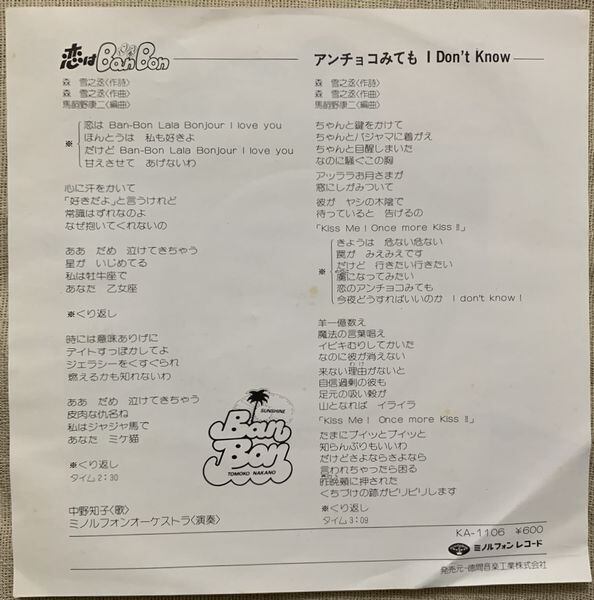 恋は Ban Bon
森 雪之丞〈作詩〉
森 雪之丞〈作曲〉
馬飼野康二〈編曲〉
※
恋は Ban-Bon Lala Bonjour I love you
ほんとうは 私も好きよ
だけど Ban-Bon Lala Bonjour I love you
甘えさせて あげないわ
心に汗をかいて
「好きだよ」と言うけれど
常識はずれなのよ
なぜ抱いてくれないの
ああ だめ 泣けてきちゃう
星が いじめてる
私は牡牛座で
あなた 乙女座
※くり返し
時には意味ありげに
デイトすっぽかしてよ
ジェラシーをくすぐられ
燃えるかも知れないわ
ああ だめ 泣けてきちゃう
皮肉な仇名ね
私はジャジャ馬で
あなた ミケ猫
※くり返し
タイム 2:30
中野知子〈歌〉
ミノルフォンオーケストラ〈演奏〉
SUNSHINE
Ban Bon
TOMOKO NAKANO
アンチョコみても I Don't Know
森 雪之丞〈作詩〉
森 雪之丞〈作曲〉
馬飼野康二〈編曲〉
ちゃんと鍵をかけて
ちゃんとパジャマに着がえ
ちゃんと目醒しまいた
なのに騒ぐこの胸
アッララお月さまが
窓にしがみついて
彼が ヤシの木陰で
待っていると 告げるの
「Kiss Me ! Once more Kiss !!」
※
きょうは 危ない危ない
罠が みえみえです
だけど 行きたい行きたい
虜になってみたい
恋のアンチョコみても
今夜どうすればいいのか I don't know !
羊一億数え
魔法の言葉唱え
イビキむりしてかいた
なのに彼が消えない
来ない理由がないと
自信過剰の彼も
足元の吸い殻が
山となれば イライラ
「Kiss Me ! Once more Kiss !!」
たまにプイッとプイッと
知らんぷりもいいわ
だけどさよならさよなら
言われちゃったら困る
昨晩頬に押された
くちづけの跡がピリピリします
※くり返し
タイム 3:09
KA-1106 ¥600
ミノルフォン レコード
発売元・徳間音楽工業株式会社